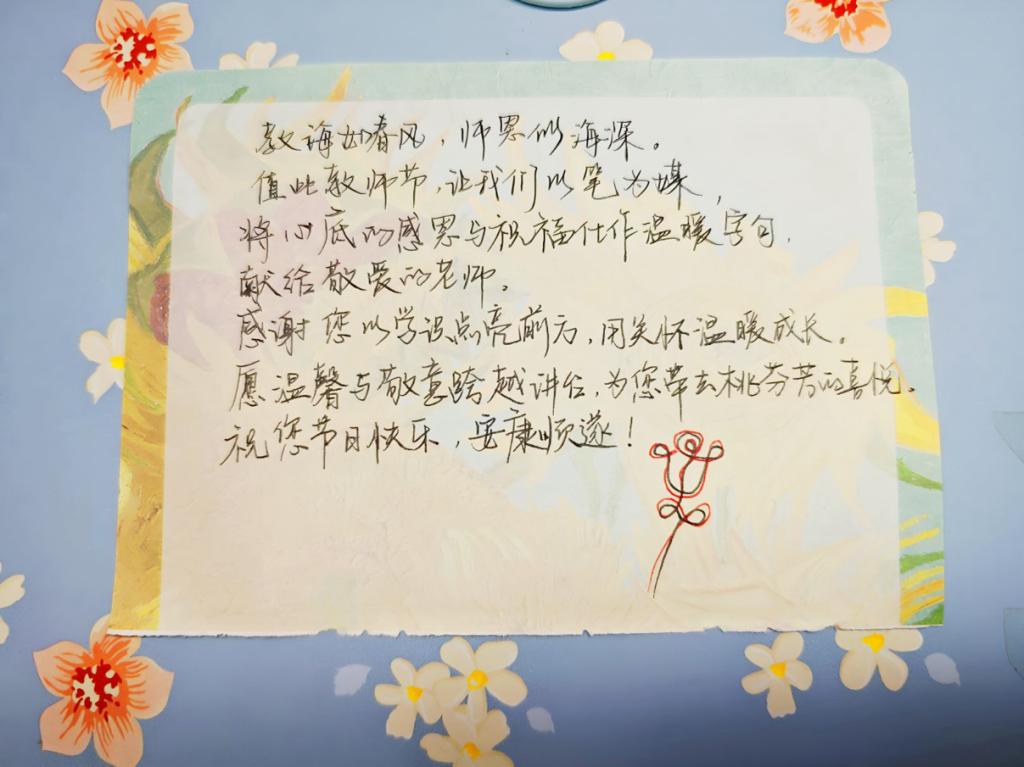 教诲如春风，师恩似海深。
值此教师节，让我们以笔为媒，
将心底的感恩与祝福化作温暖字句，
献给敬爱的老师。
感谢您以学识点亮前方，用关怀温暖成长。
愿温馨与敬意跨越讲台，为您带去桃芬芳的喜悦。
祝您节日快乐，安康顺遂！